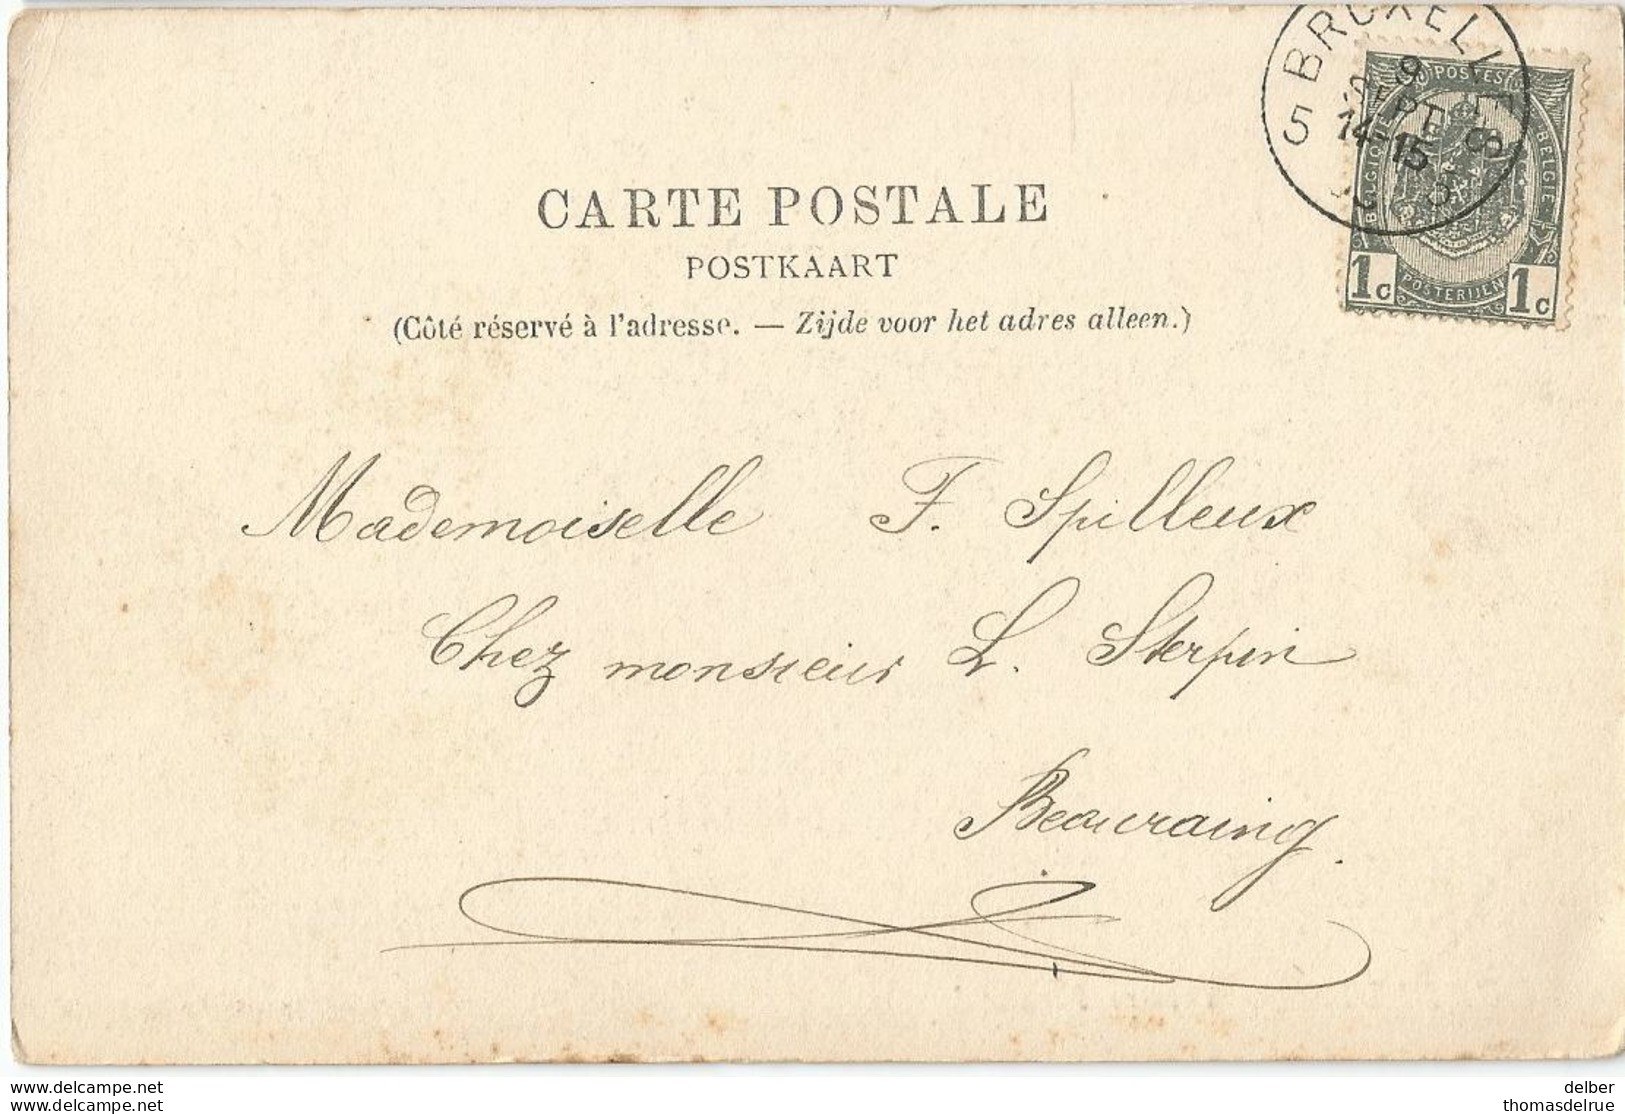 BRUXELLES
5
9
SEPT
14-15
POSTES
BELGIQUE
BELGIE
POSTERIJEN
1c 1c
CARTE POSTALE
POSTKAART
(Côté réservé à l'adresse. — Zijde voor het adres alleen.)
Mademoiselle F. Spilleux
Chez monsieur L. Sterpin
Beauraing.
www.delcampe.net delber
www.delcampe.net thomasdelrue